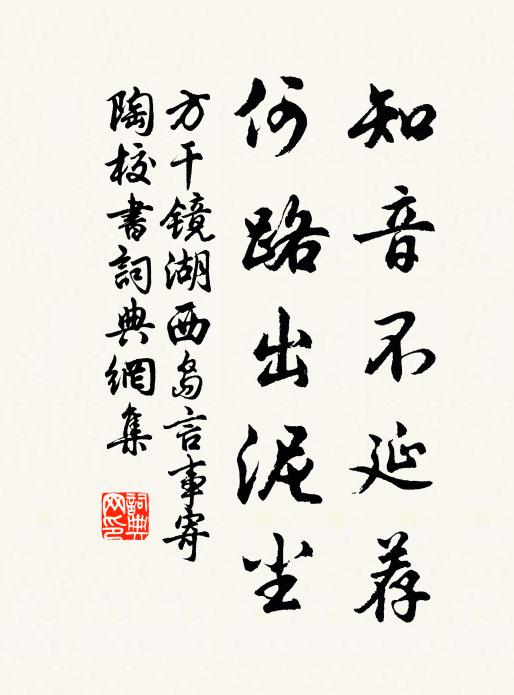 知音不延荐
何路出泥尘
方干镜湖西岛言事寄
陶校書詞典網集
詞典网印